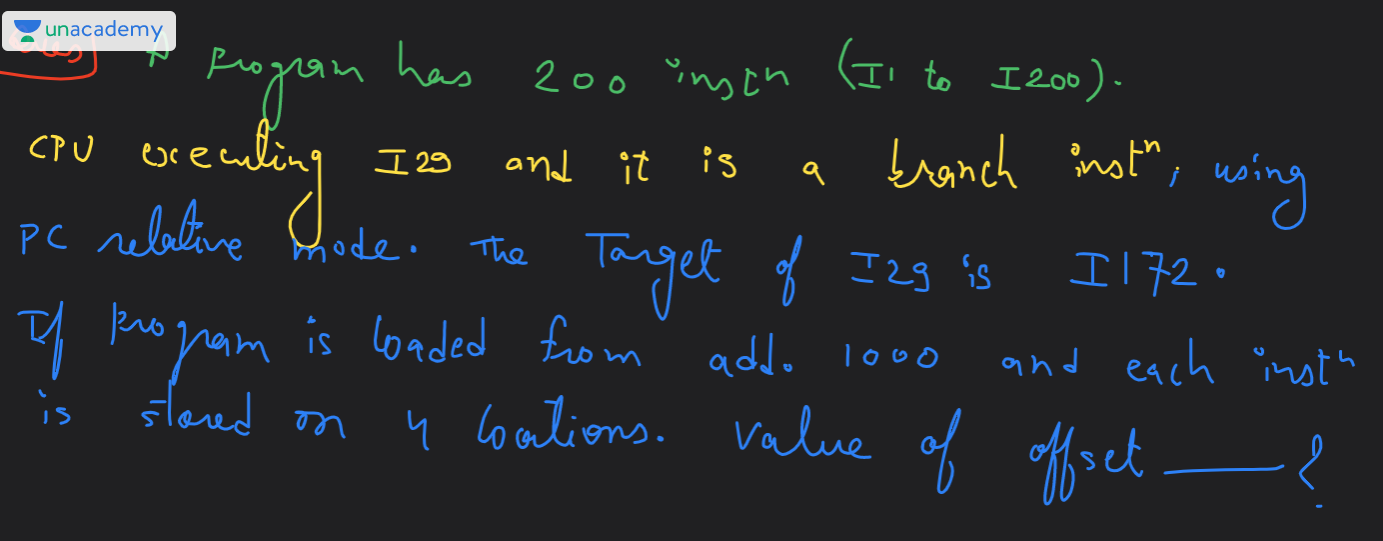 unacademy
A Program has 200 instn (I1 to I200).
CPU executing I29 and it is a branch instn, using
PC relative mode. The Target of I29 is I172.
If program is loaded from add. 1000 and each instn
is stored on 4 locations. Value of offset ______?